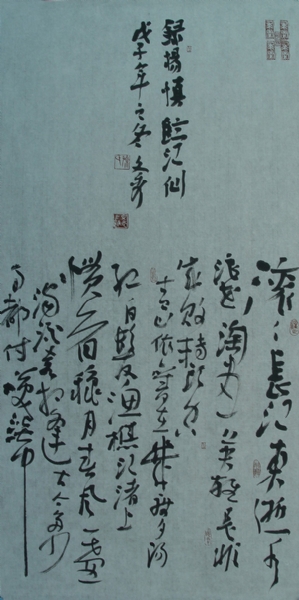 滚〻長江東逝水
浪花淘尽英雄是非
成敗转头空
青山依舊在几度夕陽
红白髮渔樵江渚上
惯看秋月春风一壶
濁酒喜相逢古今多少
事都付笑談中
録楊慎臨江仙
戊子年之冬